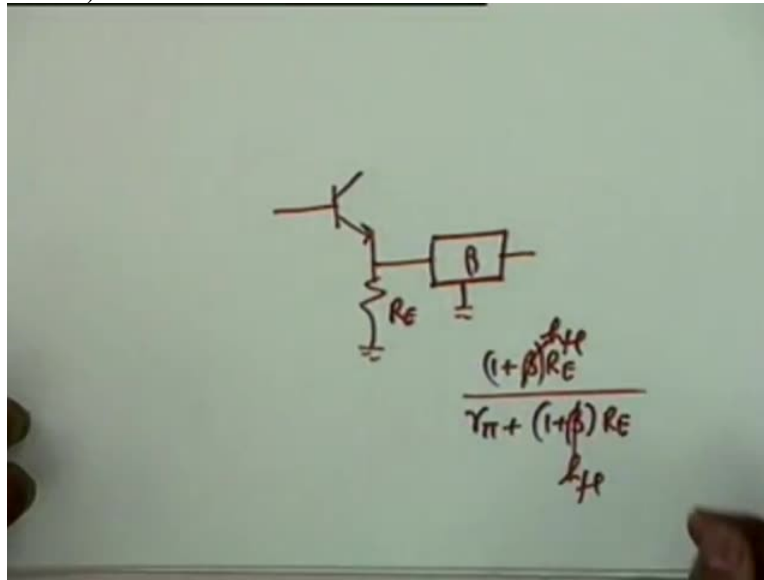 β
R_E
h_fe
(1+β)R_E
r_π + (1+β) R_E
h_fe